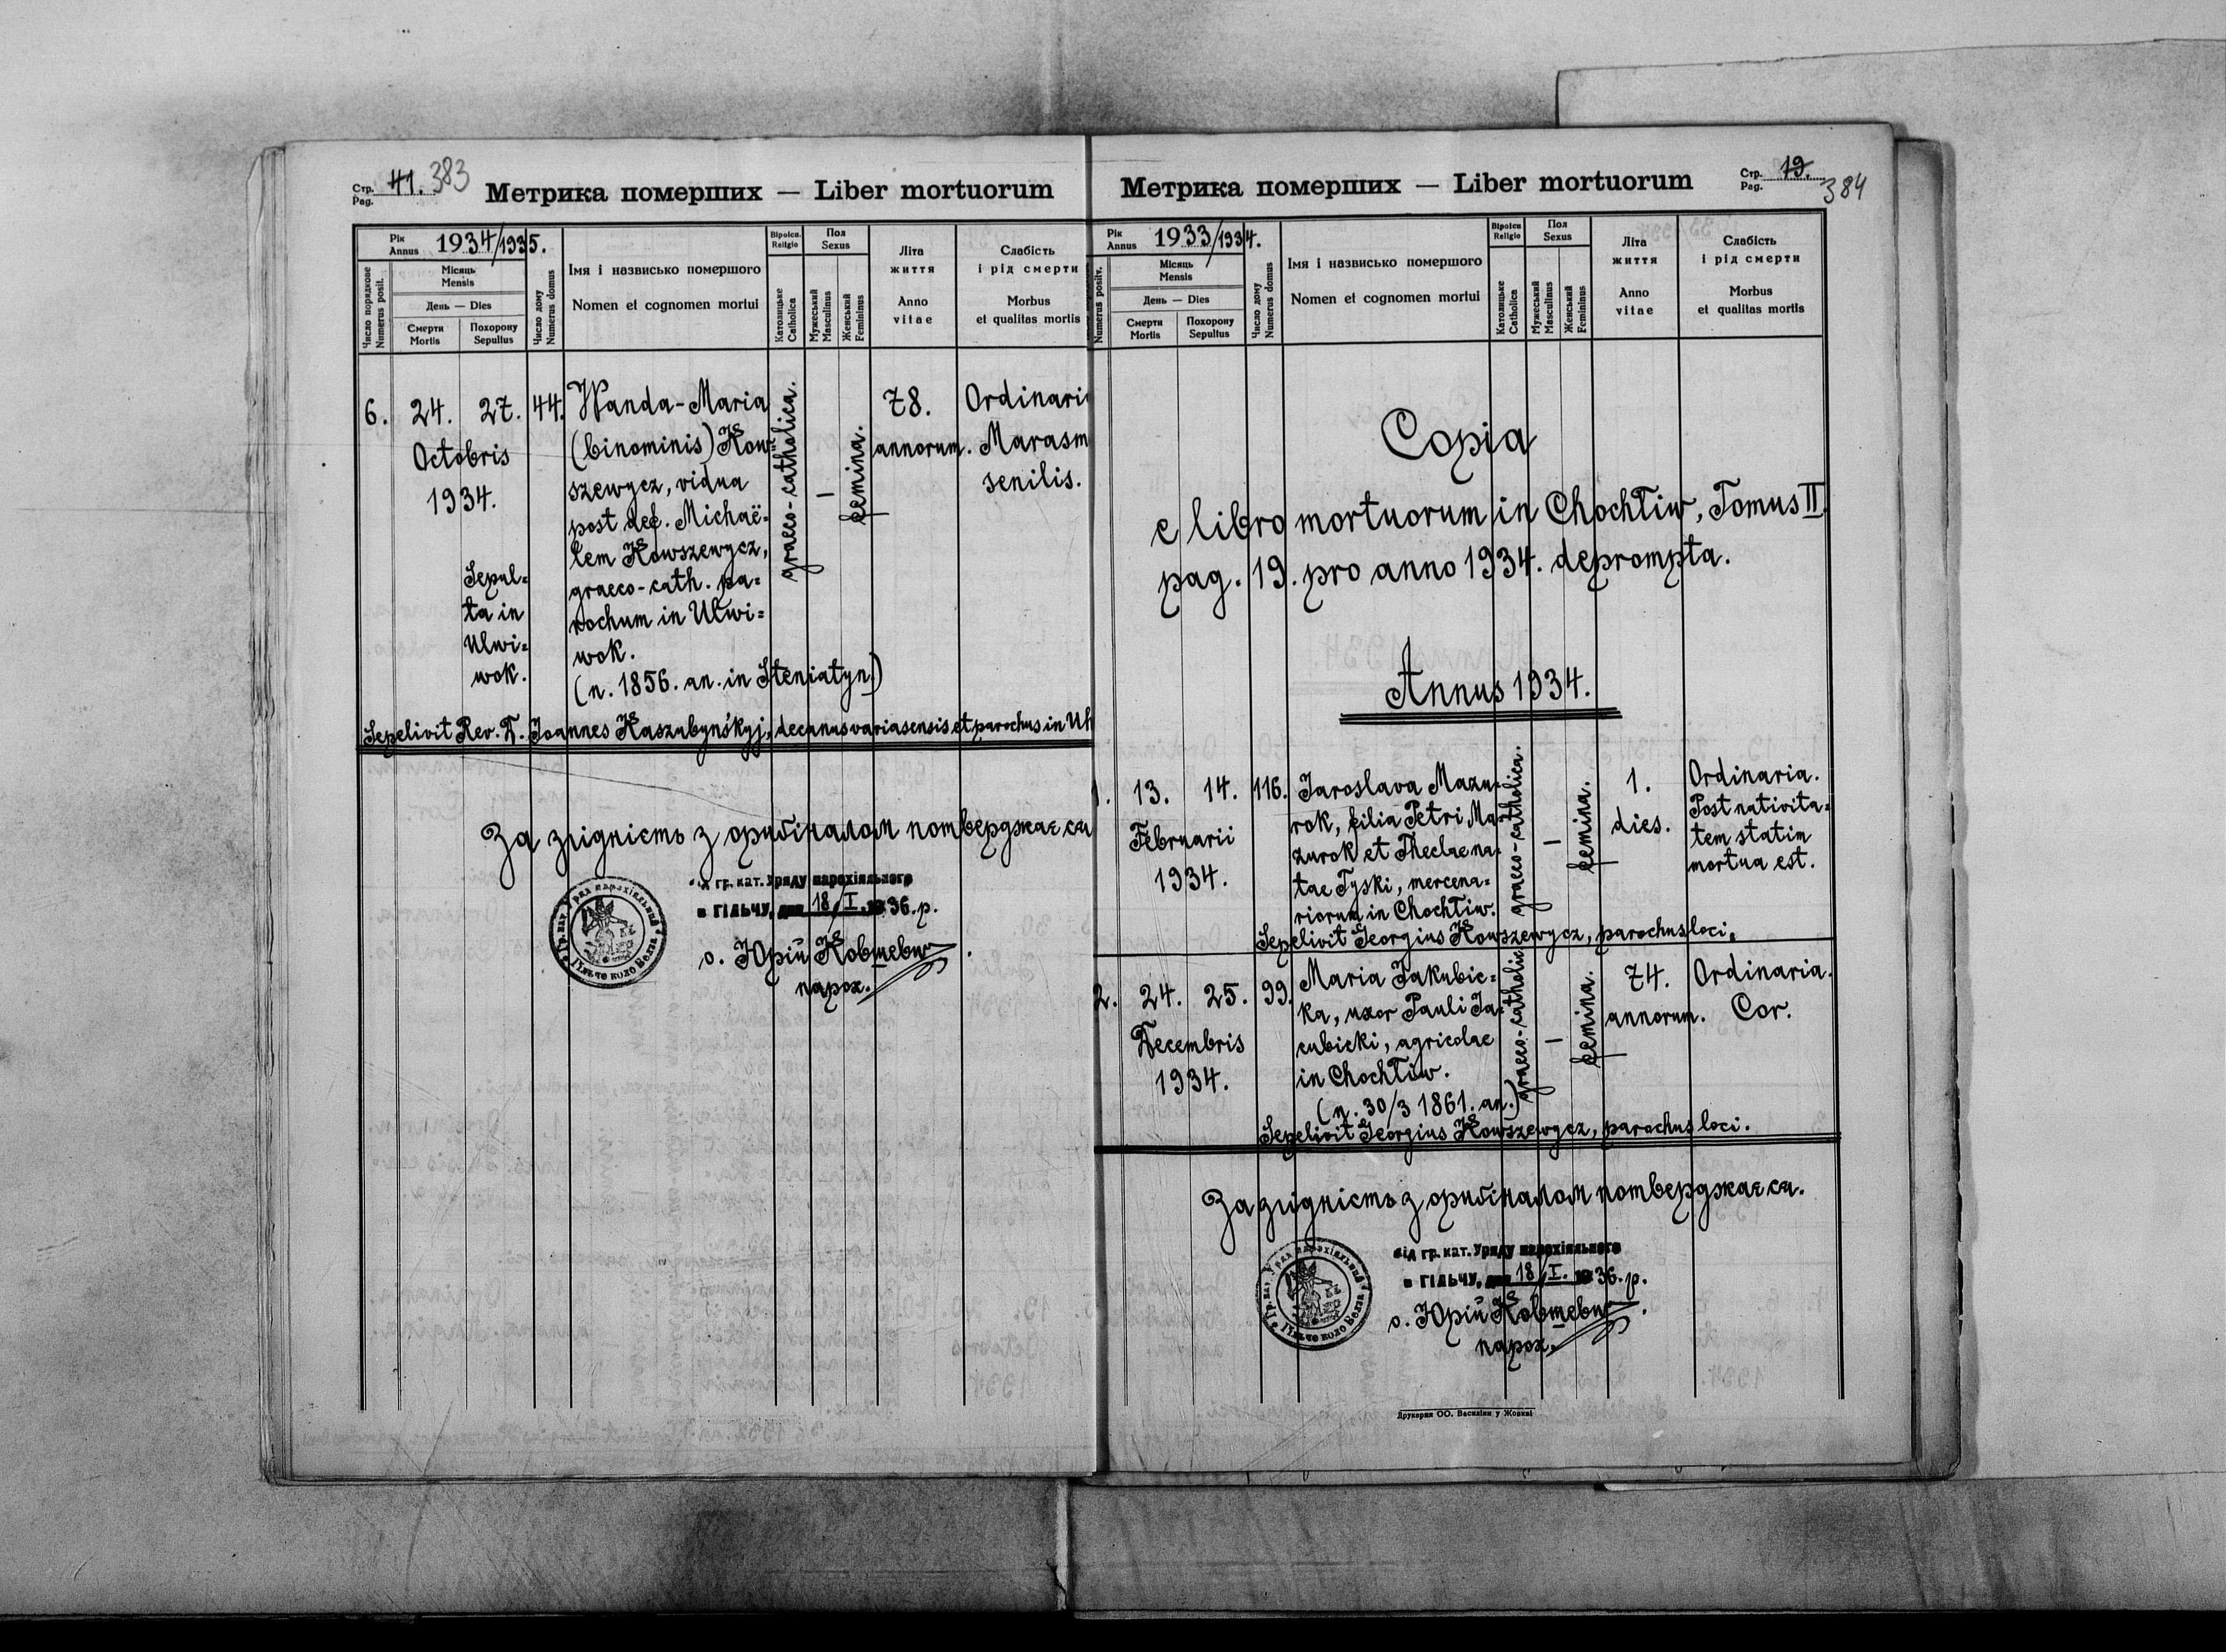 Стр. Pag. 41. 383
Метрика померших — Liber mortuorum
Рік Annus 1934/1935.
Число порядкове Numerus posit.
Місяць Mensis
День — Dies
Смерти Mortis
Похорону Sepultus
Число дому Numerus domus
Імя і назвисько помершого
Nomen et cognomen mortui
Віроісп. Religio
Католицьке Catholica
Пол Sexus
Мужеський Masculinus
Женський Femininus
Літа життя
Anno vitae
Слабість і рід смерти
Morbus et qualitas mortis
6. 24. 27. 44.
Octobris
1934.
Sepul=
ta in
Ulwi=
wok.
Wanda-Maria
(binominis) Kow=
szewycz, vidua
post def. Michaë=
lem Kowszewycz,
graeco-cath. pa=
rochum in Ulwi=
wok.
(n. 1856. an. in Steniatyn)
graeco-catholica.
—
femina.
78.
annorum.
Ordinari
Marasm
senilis.
Sepelivit Rev. D. Joannes Kaszubynśkyj, decanus variasensis et parochus in Uh
За згідність з оригіналом потверджаєся
від гр. кат. Уряду парохіяльного
в ГІЛЬЧУ, дня 18/I. 1936. р.
о. Юрій Ковшевич
парох.
Стр. Pag. 19. 384
Метрика померших — Liber mortuorum
Рік Annus 1933/1934.
Numerus positv.
Місяць Mensis
День — Dies
Смерти Mortis
Похорону Sepultus
Число дому Numerus domus
Імя і назвисько помершого
Nomen et cognomen mortui
Віроісп Religio
Католицьке Catholica
Пол Sexus
Мужеський Masculinus
Женський Femininus
Літа життя
Anno vitae
Слабість і рід смерти
Morbus et qualitas mortis
Copia
e libro mortuorum in Chochłiw, Tomus II.
pag. 19. pro anno 1934. deprompta.
Annus 1934.
1. 13. 14. 116.
Februarii
1934.
Jaroslava Mazu=
rok, filia Petri Ma=
zurok et Theclae na=
tae Tyski, mercena=
riorum in Chochłiw.
graeco-catholica.
—
femina.
1.
dies.
Ordinaria.
Post nativita=
tem statim
mortua est.
Sepelivit Georgius Kowszewycz, parochus loci.
2. 24. 25. 99.
Decembris
1934.
Maria Jakubic=
ka, uxor Pauli Ja=
cubicki, agricolae
in Chochłiw.
(n. 30/3 1861. an.)
graeco-catholic
—
femina.
74.
annorum.
Ordinaria.
Cor.
Sepelivit Georgius Kowszewycz, parochus loci.
За згідність з оригіналом потверджаєся.
від гр. кат. Уряду парохіяльного
в ГІЛЬЧУ, дня 18/I. 1936. р.
о. Юрій Ковшевич.
парох.
Друкарня ОО. Василіян у Жовкві